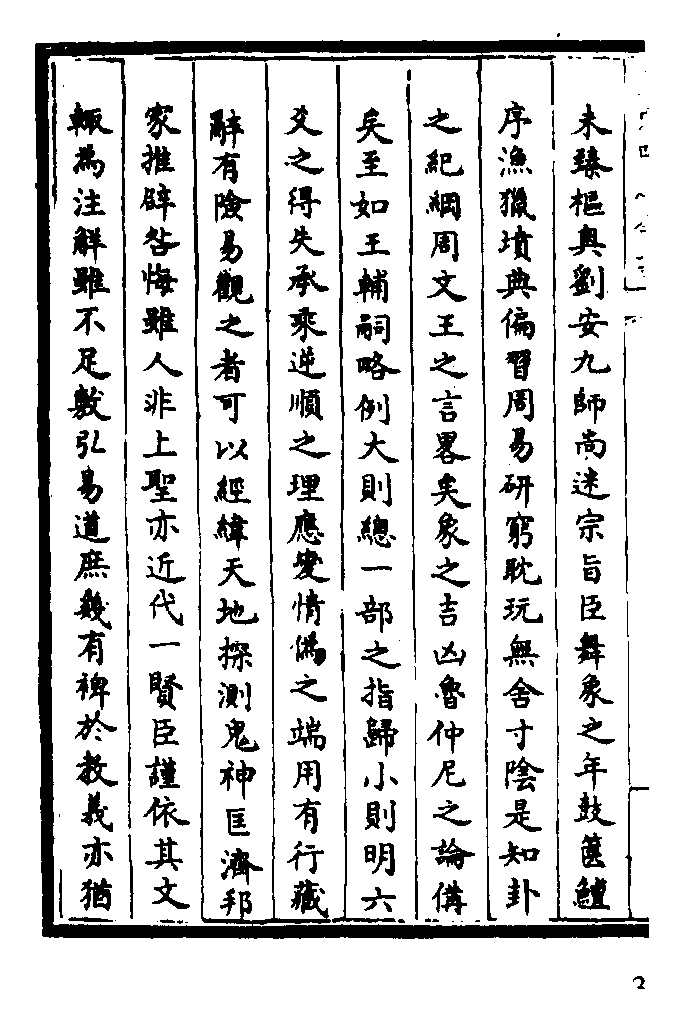 未臻樞奥劉安九師尚迷宗旨臣舞象之年鼓篋鱣
序漁獵墳典偏習周易研窮耽玩無舍寸陰是知卦
之紀綱周文王之言畧矣象之吉凶魯仲尼之論備
矣至如王輔嗣略例大則總一部之指歸小則明六
爻之得失承乘逆順之理應變情偽之端用有行藏
辭有險易觀之者可以經緯天地探測鬼神匡濟邦
家推辟咎悔雖人非上聖亦近代一賢臣謹依其文
輒為注解雖不足敷弘易道庶幾有裨於教義亦猶